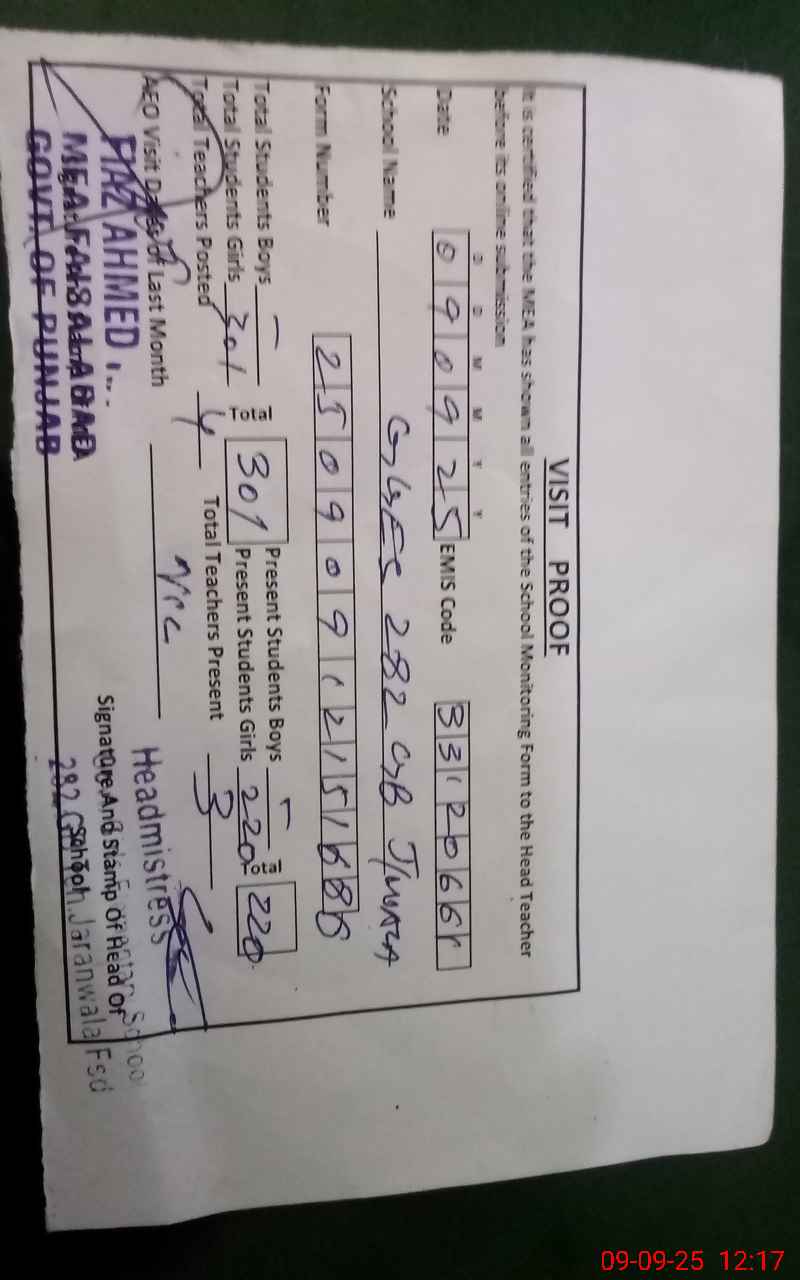 VISIT PROOF
It is certified that the MEA has shown all entries of the School Monitoring Form to the Head Teacher
before its online submission
D D M M Y Y
Date 0 9 0 9 2 5 EMIS Code 3 3 1 2 0 6 6 1
School Name GGES 282 GB J/WALA
Form Number 2 5 0 9 0 9 1 2 1 5 1
Total Students Boys – Total Present Students Boys – Total
Total Students Girls 301 301 Present Students Girls 220 220
Total Teachers Posted 4 Total Teachers Present 3
AEO Visit Dates of Last Month
Headmistress
FIAZ AHMED
Signature And Stamp Of Head Of
School
MEA FAISALABAD
282 G.B. Jaranwala Fsd
GOVT. OF PUNJAB
09-09-25 12:17